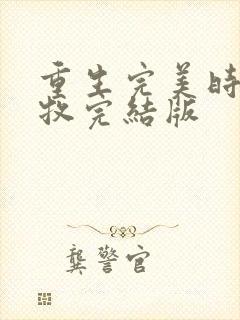 重生完美時
牧完結版
龔警官